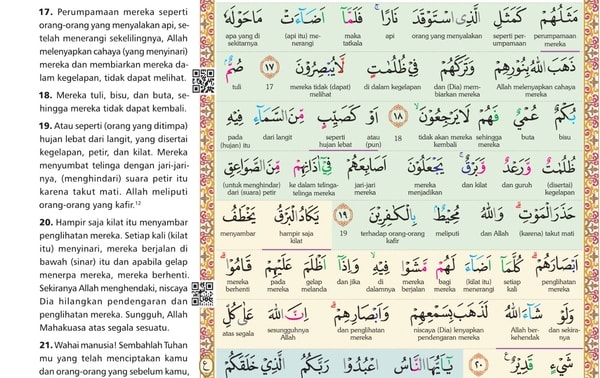 17. Perumpamaan mereka seperti
orang-orang yang menyalakan api, se-
telah menerangi sekelilingnya, Allah
melenyapkan cahaya (yang menyinari)
mereka dan membiarkan mereka da-
lam kegelapan, tidak dapat melihat.
18. Mereka tuli, bisu, dan buta, se-
hingga mereka tidak dapat kembali.
19. Atau seperti (orang yang ditimpa)
hujan lebat dari langit, yang disertai
kegelapan, petir, dan kilat. Mereka
menyumbat telinga dengan jari-jari-
nya, (menghindari) suara petir itu
karena takut mati. Allah meliputi
orang-orang yang kafir.12
20. Hampir saja kilat itu menyambar
penglihatan mereka. Setiap kali (kilat
itu) menyinari, mereka berjalan di
bawah (sinar) itu dan apabila gelap
menerpa mereka, mereka berhenti.
Sekiranya Allah menghendaki, niscaya
Dia hilangkan pendengaran dan
penglihatan mereka. Sungguh, Allah
Mahakuasa atas segala sesuatu.
21. Wahai manusia! Sembahlah Tuhan
mu yang telah menciptakan kamu
dan orang-orang yang sebelum kamu,
مَثَلُهُمْ كَمَثَلِ الَّذِى اسْتَوْقَدَ نَارًا ۚ فَلَمَّآ اَضَاۤءَتْ مَا حَوْلَهٗ
perumpamaan mereka seperti per-umpamaan orang yang menyalakan api maka tatkala (api itu) me-nerangi apa yang di sekitarnya
ذَهَبَ اللّٰهُ بِنُوْرِهِمْ وَتَرَكَهُمْ فِيْ ظُلُمٰتٍ لَّا يُبْصِرُوْنَ ١٧ صُمٌّۢ
Allah melenyapkan cahaya mereka dan (Dia) mem-biarkan mereka di dalam kegelapan mereka tidak (dapat) melihat 17 tuli
بُكْمٌ عُمْيٌ فَهُمْ لَا يَرْجِعُوْنَۙ ١٨ اَوْ كَصَيِّبٍ مِّنَ السَّمَاۤءِ فِيْهِ
bisu buta sehingga mereka tidak akan kembali 18 atau (pun) seperti hujan lebat dari langit pada (hujan) itu
ظُلُمٰتٌ وَّرَعْدٌ وَّبَرْقٌۚ يَجْعَلُوْنَ اَصَابِعَهُمْ فِيْٓ اٰذَانِهِمْ مِّنَ الصَّوَاعِقِ
(disertai) kegelapan dan guruh dan kilat mereka menjadikan jari-jari mereka ke dalam telinga-telinga mereka (untuk menghindar) dari (suara) petir
حَذَرَ الْمَوْتِۗ وَاللّٰهُ مُحِيْطٌۢ بِالْكٰفِرِيْنَ ١٩ يَكَادُ الْبَرْقُ يَخْطَفُ
(karena) takut mati dan Allah meliputi terhadap orang-orang kafir 19 hampir saja kilat menyambar
اَبْصَارَهُمْ ۗ كُلَّمَآ اَضَاۤءَ لَهُمْ مَّشَوْا فِيْهِ ۙ وَاِذَآ اَظْلَمَ عَلَيْهِمْ قَامُوْا ۗ
penglihatan mereka setiap kali (kilat itu) menerangi bagi mereka mereka berjalan di dalamnya dan jika gelap melanda pada mereka mereka berhenti
وَلَوْ شَاۤءَ اللّٰهُ لَذَهَبَ بِسَمْعِهِمْ وَاَبْصَارِهِمْ ۗ اِنَّ اللّٰهَ عَلٰى كُلِّ
dan sekira-nya Allah ber-kehendak niscaya (Dia) lenyapkan pendengaran mereka dan penglihatan mereka sesungguhnya Allah atas segala
شَيْءٍ قَدِيْرٌ ٢٠ يٰٓاَيُّهَا النَّاسُ اعْبُدُوْا رَبَّكُمُ الَّذِيْ خَلَقَكُمْ
ع